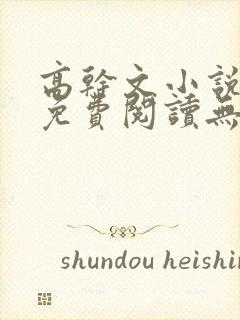 高幹文小說
免費閱讀無
shundou heishin